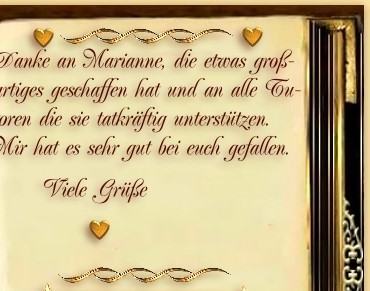 Danke an Marianne, die etwas groß-
artiges geschaffen hat und an alle Tu-
toren die sie tatkräftig unterstützen.
Mir hat es sehr gut bei euch gefallen.
Viele Grüße